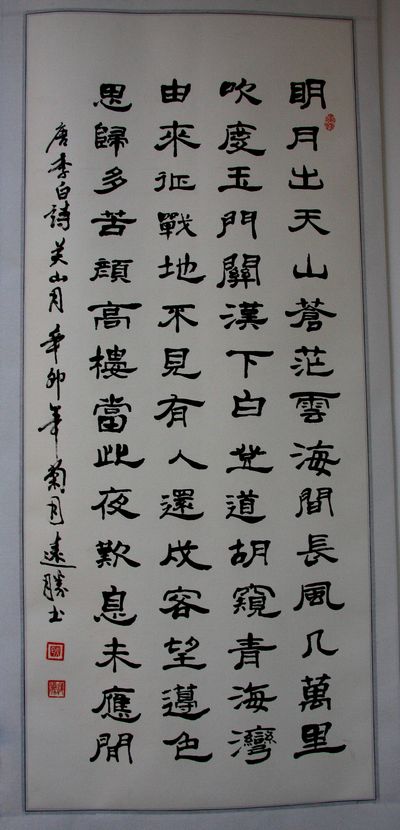 明月出天山蒼茫雲海間長風几萬里
吹度玉門關漢下白登道胡窺青海灣
由來征戰地不見有人還戍客望邊色
思歸多苦顏高樓當此夜歎息未應閒
唐李白詩关山月辛卯年菊月遠勝书